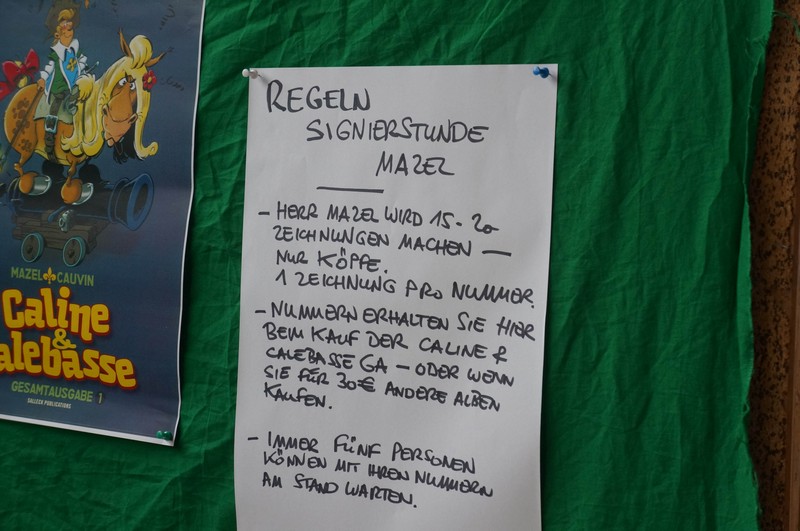 MAZEL CAUVIN
Caline
&
alebasse
GESAMTAUSGABE 1
SALLECK PUBLICATIONS
REGELN
SIGNIERSTUNDE
MAZEL
- HERR MAZEL WIRD 15-20
ZEICHNUNGEN MACHEN —
NUR KÖPFE.
1 ZEICHNUNG PRO NUMMER.
- NUMMERN ERHALTEN SIE HIER
BEIM KAUF DER CALINE &
CALEBASSE GA - ODER WENN
SIE FÜR 30€ ANDERE ALBEN
KAUFEN.
- IMMER FÜNF PERSONEN
KÖNNEN MIT IHREN NUMMERN
AM STAND WARTEN.